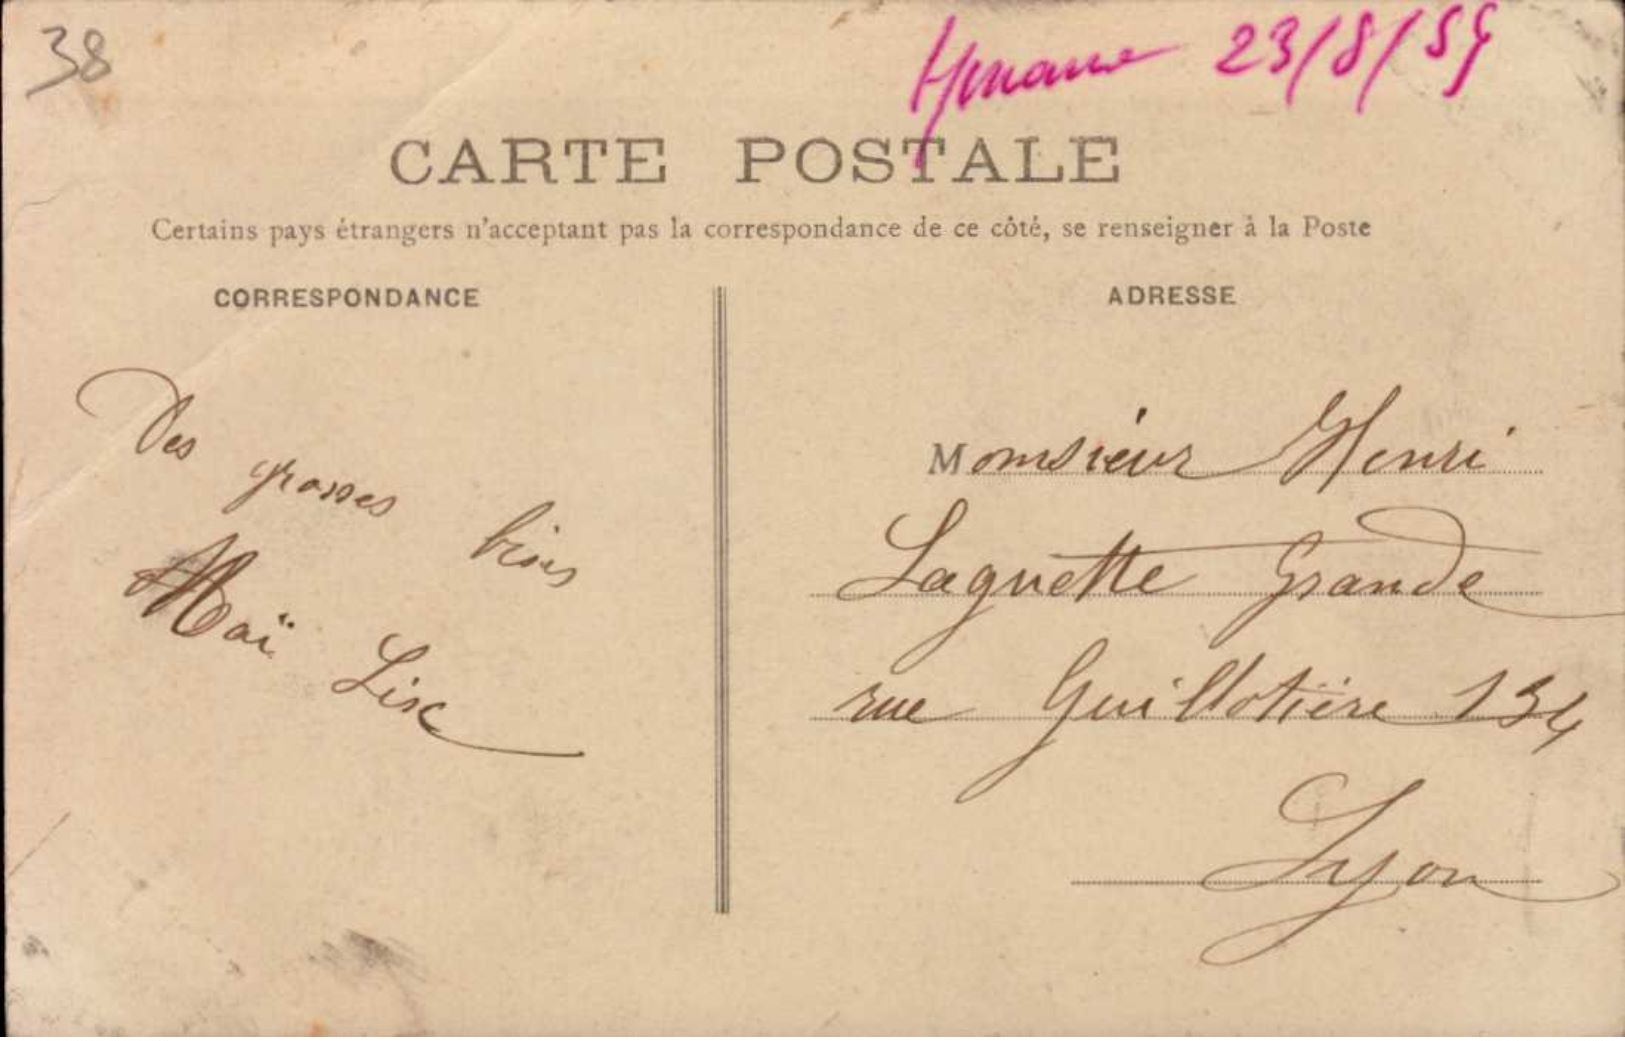 38
23/8/59
CARTE POSTALE
Certains pays étrangers n'acceptant pas la correspondance de ce côté, se renseigner à la Poste
CORRESPONDANCE
ADRESSE
Des grosses bises
Maï Lise
Monsieur Henri
Laguette Grande
rue Guillotière 134
Lyon